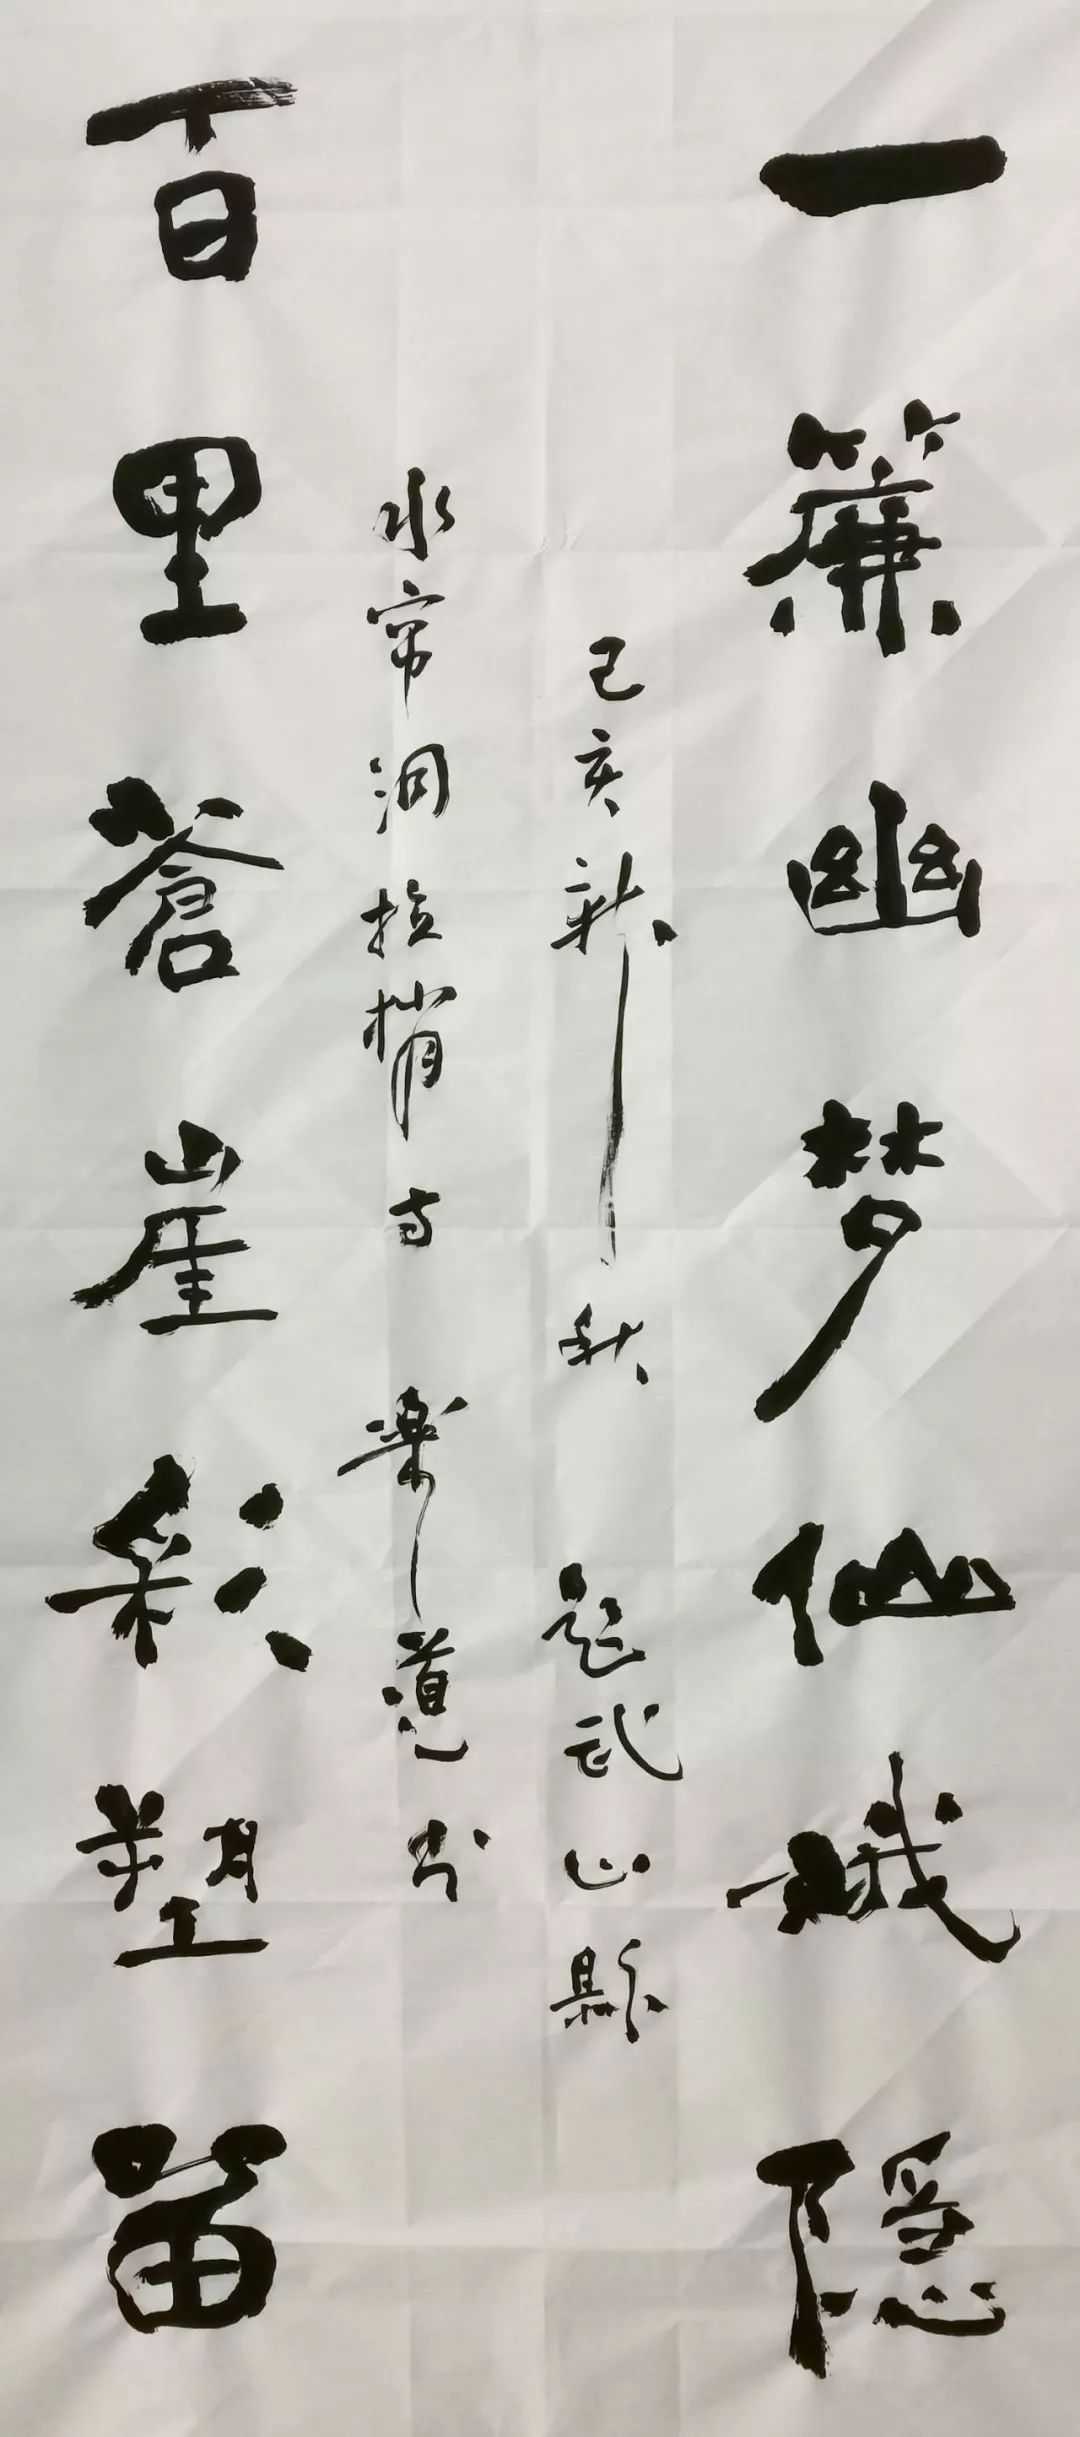 一簾幽梦仙娥隱
己亥新秋 题武山縣
水帘洞拉梢寺 樂道书
百里蒼崖彩塑留